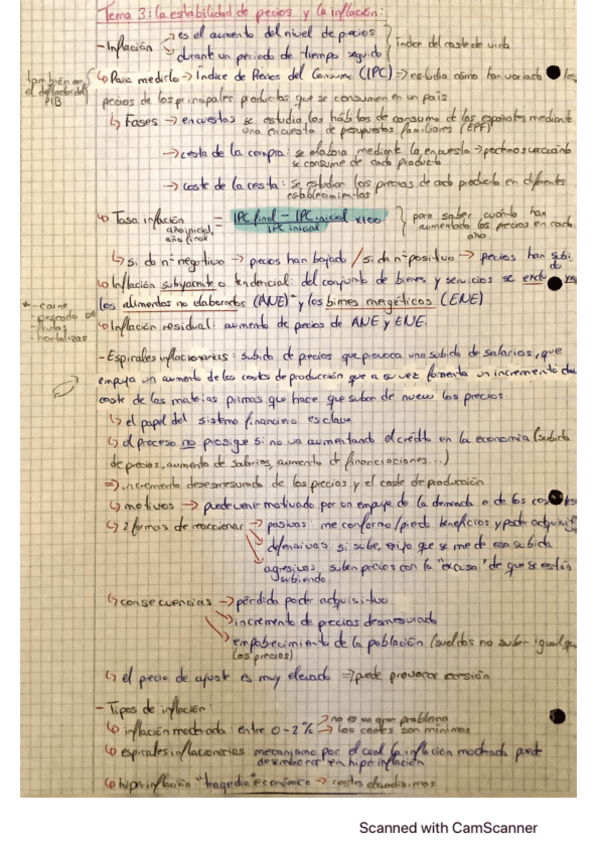 Tema 3: la estabilidad de precios y la inflación:
- Inflación → es el aumento del nivel de precios
→ durante un periodo de tiempo seguido } índice del coste de vida
también en el deflactor del PIB
↳ Para medirlo → Índice de Precios del Consumo (IPC) → estudia cómo han variado los
precios de los principales productos que se consumen en un país
↳ Fases → encuestas se estudia los hábitos de consumo de los españoles mediante
una encuesta de presupuestos familiares (EPF)
→ cesta de la compra: se elabora mediante la encuesta →
se consume de cada producto
→ coste de la cesta: se estudian los precios de cada producto en diferentes
establecimientos
↳ Tasa inflación año inicial, año final = IPC final - IPC inicial / IPC inicial x100 } para saber cuánto han
aumentado los precios en cada
año
↳ si da nº negativo → precios han bajado / si da nº positivo → precios han subi
do
↳ Inflación subyacente o tendencial: del conjunto de bienes y servicios se
los alimentos no elaborados (ANE)* y los bienes energéticos (ENE)
* - carne
- pescado
- frutas
- hortalizas
↳ Inflación residual: aumento de precios de ANE y ENE.
- Espirales inflacionarias: subida de precios que provoca una subida de salarios, que
empuja un aumento de los costes de producción que a su vez fomenta un incremento del
coste de las materias primas que hace que suban de nuevo los precios.
↳ el papel del sistema financiero es clave
↳ el proceso no prosigue si no va aumentando el crédito en la economía (subida
de precios, aumento de salarios, aumento de financiaciones...)
⇒ incremento desmesurado de los precios y el coste de producción
↳ motivos → puede venir motivado por un empuje de la demanda o de los costes
↳ 2 formas de reaccionar → pasivas: me conformo/pierdo beneficios y poder adquisit
→ defensivas: si sube, exijo que se me dé esa subida
→ agresivas, suben precios con la "excusa" de que se están
subiendo
↳ consecuencias → pérdida poder adquisitivo
→ incremento de precios desmesurado
→ empobrecimiento de la población (sueldos no suben igual que
los precios)
↳ el precio de ajuste es muy elevado ⇒ puede provocar recesión
- Tipos de inflación:
↳ inflación moderada: entre 0-2% → no es un gran problema
→ los costes son mínimos
↳ espirales inflacionarias mecanismo por el cual la inflación moderada puede
desembocar en hiperinflación
↳ hiperinflación "tragedia" económica → costes elevadísimos
Scanned with CamScanner